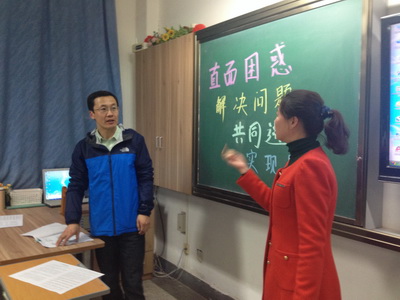 直面困惑
解决问题
共同
实现